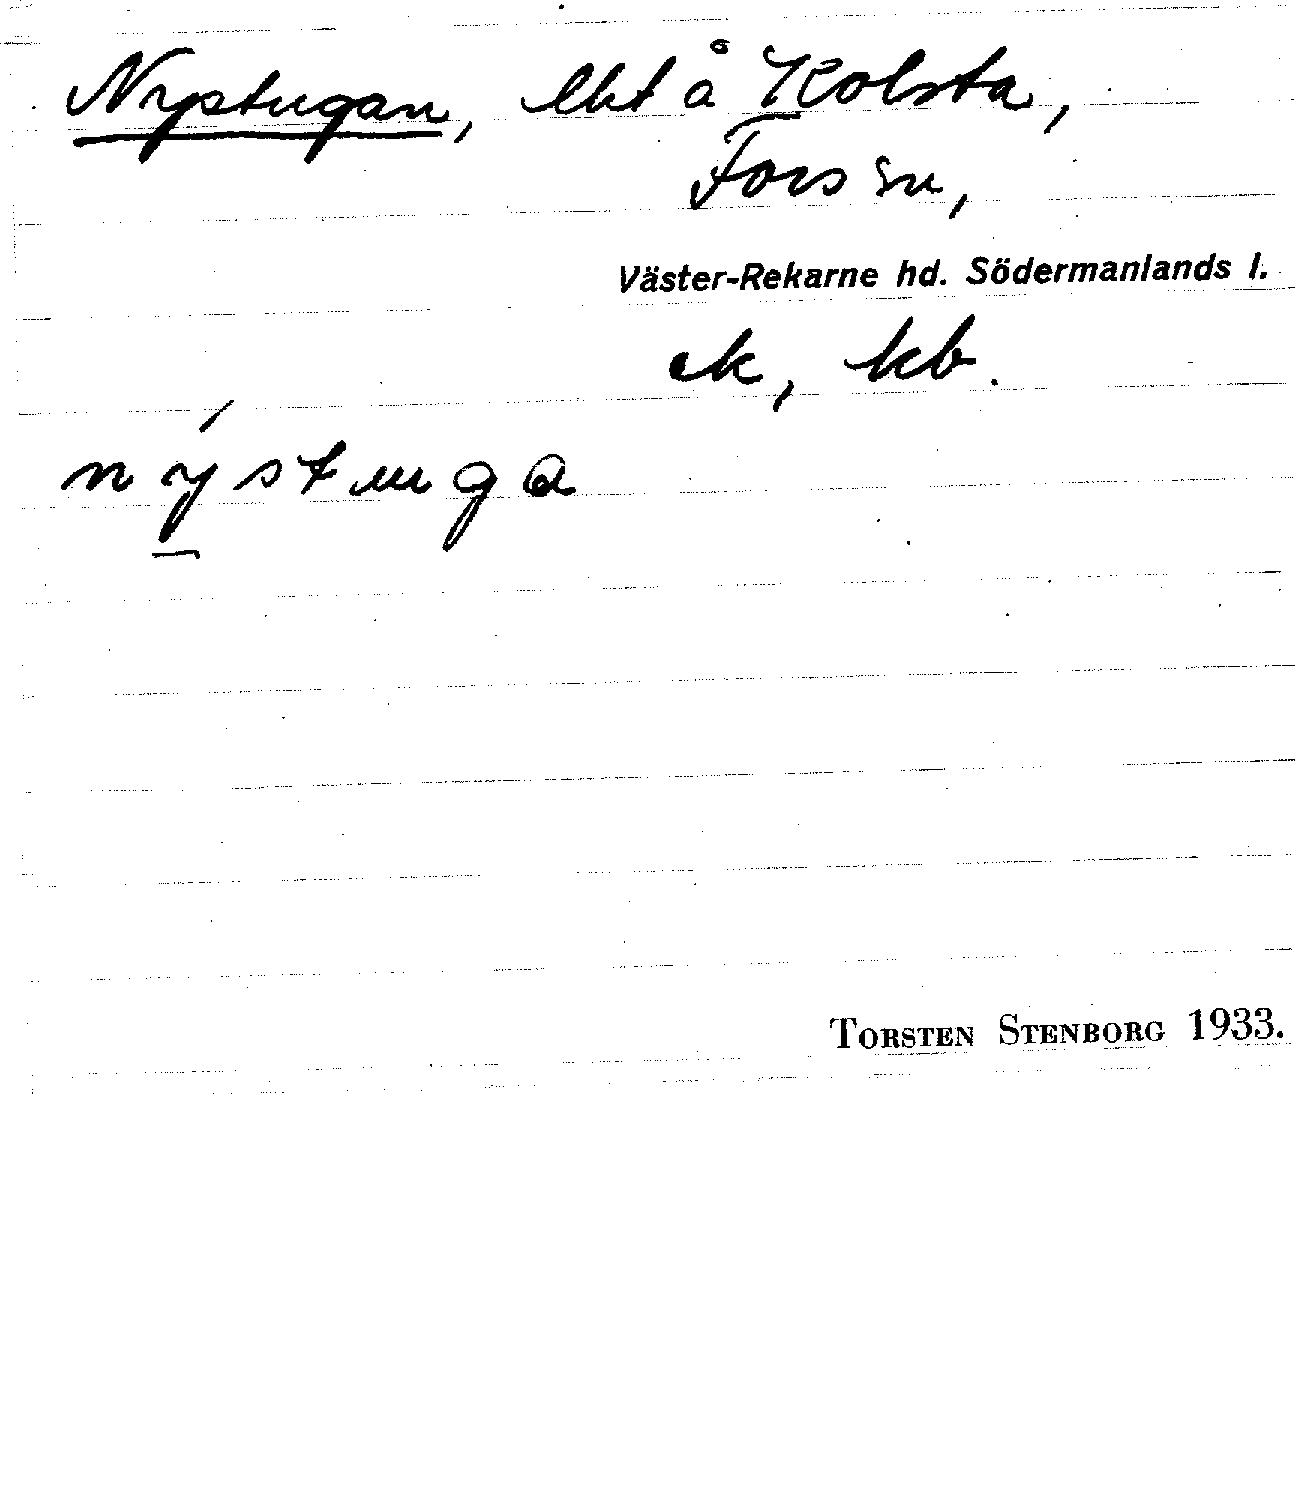 Nystugan, lht å Kolsta,
Fors sn,
Väster-Rekarne hd. Södermanlands l.
ek, kb.
nýstuga
TORSTEN STENBORG 1933.